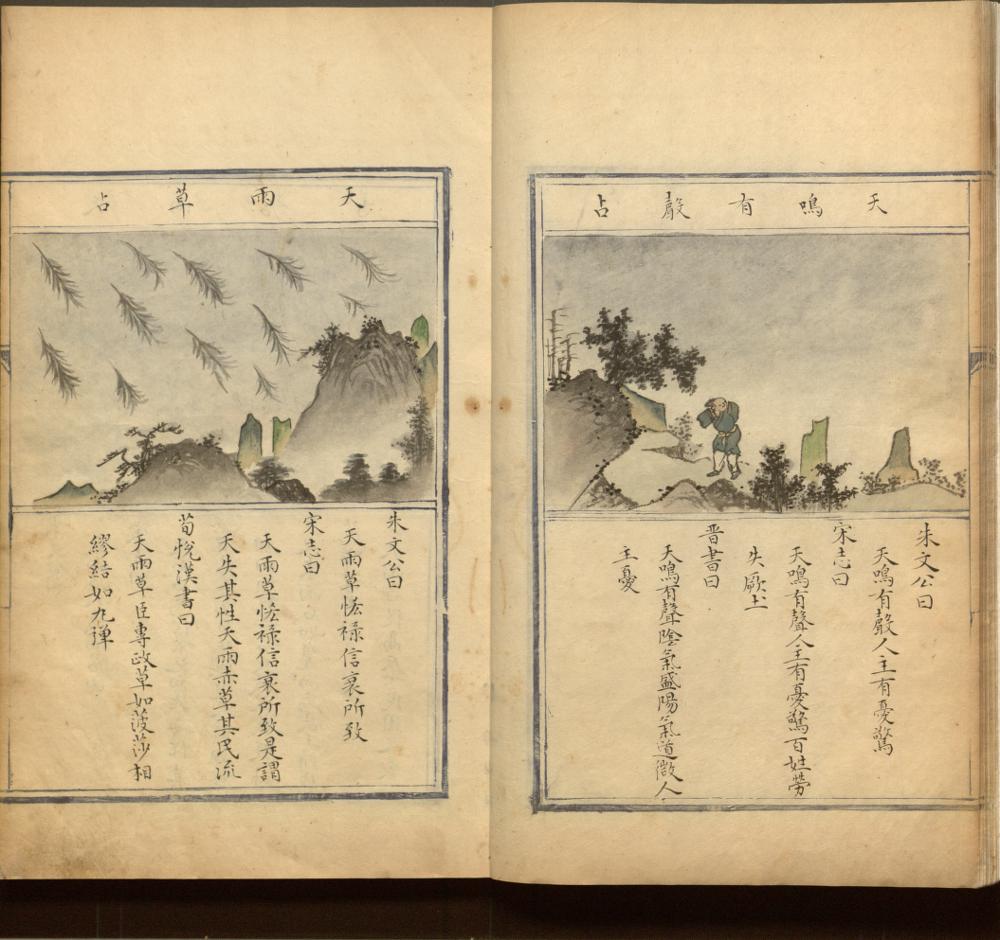 天鳴有聲占
朱文公曰
天鳴有聲人主有憂驚
宋志曰
天鳴有聲人主有憂驚百姓勞
失厥土
晋書曰
天鳴有聲陰氣盛陽氣道微人
主憂
天雨草占
朱文公曰
天雨草恡祿信衰所致
宋志曰
天雨草恡祿信衰所致是謂
天失其性天雨赤草其民流
荀悅漢書曰
天雨草臣專政草如莎相
繆結如九彈